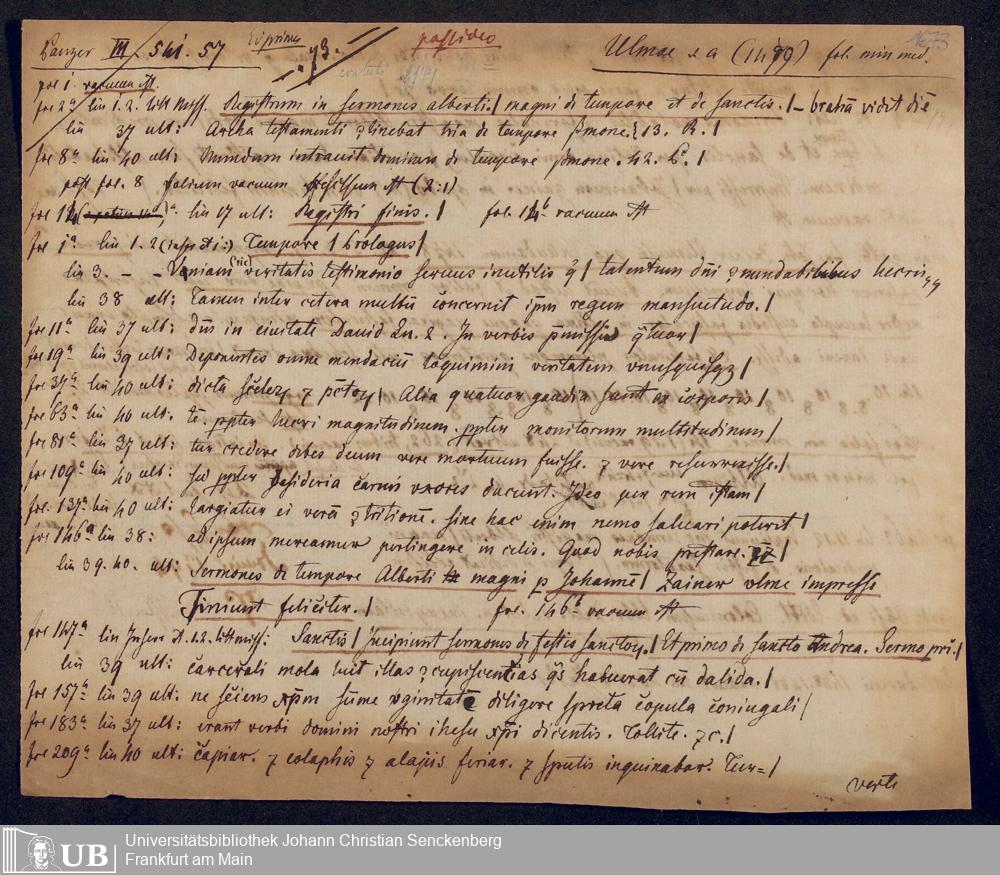 Panzer III 541. 57
73.
possideo
Ulmae s a (1499) fol. min med.
fol 1 vacuum est.
fol 2a lin 1. 2. litt Miss. Registrum in sermones alberti / magni de tempore et de sanctis. / – brahã vidit diẽ
lin 37 ult: Archa testamenti ꝯtinebat tria de tempore ẞmone. 13. R. /
fol 8a lin 40 ult: Mundum intravit dominum de tempore ẞmone. 42. L. /
post fol. 8 folium vacuum est (2:1)
lin 17 ult: Registri finis. / fol. 12b vacuum est
fol 1a lin 1. 2 Tempore / Prologus /
lin 3. – – Veniam (sic) veritatis testimonio servus inutilis q̃ / talentum dñi
lin 38 ult: Tamen inter cetera multũ concernit ip̃m regem mansuetudo. /
fol 11a lin 37 ult: dñs in civitate David Lu. 2. In verbis p̃missis q̃tuor /
fol 19a lin 39 ult: Deponentes omne mendaciũ loquimini veritatem vnusquisqꝫ /
fol 37a lin 40 ult: dicta / Alia quatuor gaudia sunt in corporis /
fol 63a lin 40 ult. te. ꝓpter lucri magnitudinem. ꝓpter monitorum multitudinem /
fol 81a lin 37 ult: tur credere debes deum vere mortuum fuisse. ⁊ vere resurrexisse. /
fol 109a lin 40 ult: sed ꝓpter desideria carnis vxores ducunt. Ideo per rem istam /
fol. 137a lin 40 ult: largiatur ei verã ꝯtritionẽ. sine hac enim nemo salvari poterit /
fol 146a lin 38: ad ipsum mereamur pertingere in celis. Quod nobis prestare. ⁊c /
lin 39. 40. ult: Sermones de tempore Alberti magni p Johannẽ / Zainer vlme impressi
Finiunt feliciter. / fol. 146b vacuum est
fol 147a lin 1.2. litt miss: Sanctis / Incipiunt sermones de festis sanctoꝝ. / Et primo de sancto Andrea. Sermo pri. /
lin 39 ult: carcerali mola luit illas ꝯcupiscentias q̃s habuerat cũ dalida. /
fol 157a lin 39 ult: ne sciens xp̃m sume vginitatẽ diligere spreta copula coniugali /
fol 183a lin 37 ult: erant verbi domini nostri ihesu xp̃i dicentis. Tollite. ⁊c. /
fol 209a lin 40 ult: capiar. ⁊ colaphis ⁊ alapis feriar. ⁊ sputis inquinabor. Tur= /
verte
UB
Universitätsbibliothek Johann Christian Senckenberg
Frankfurt am Main